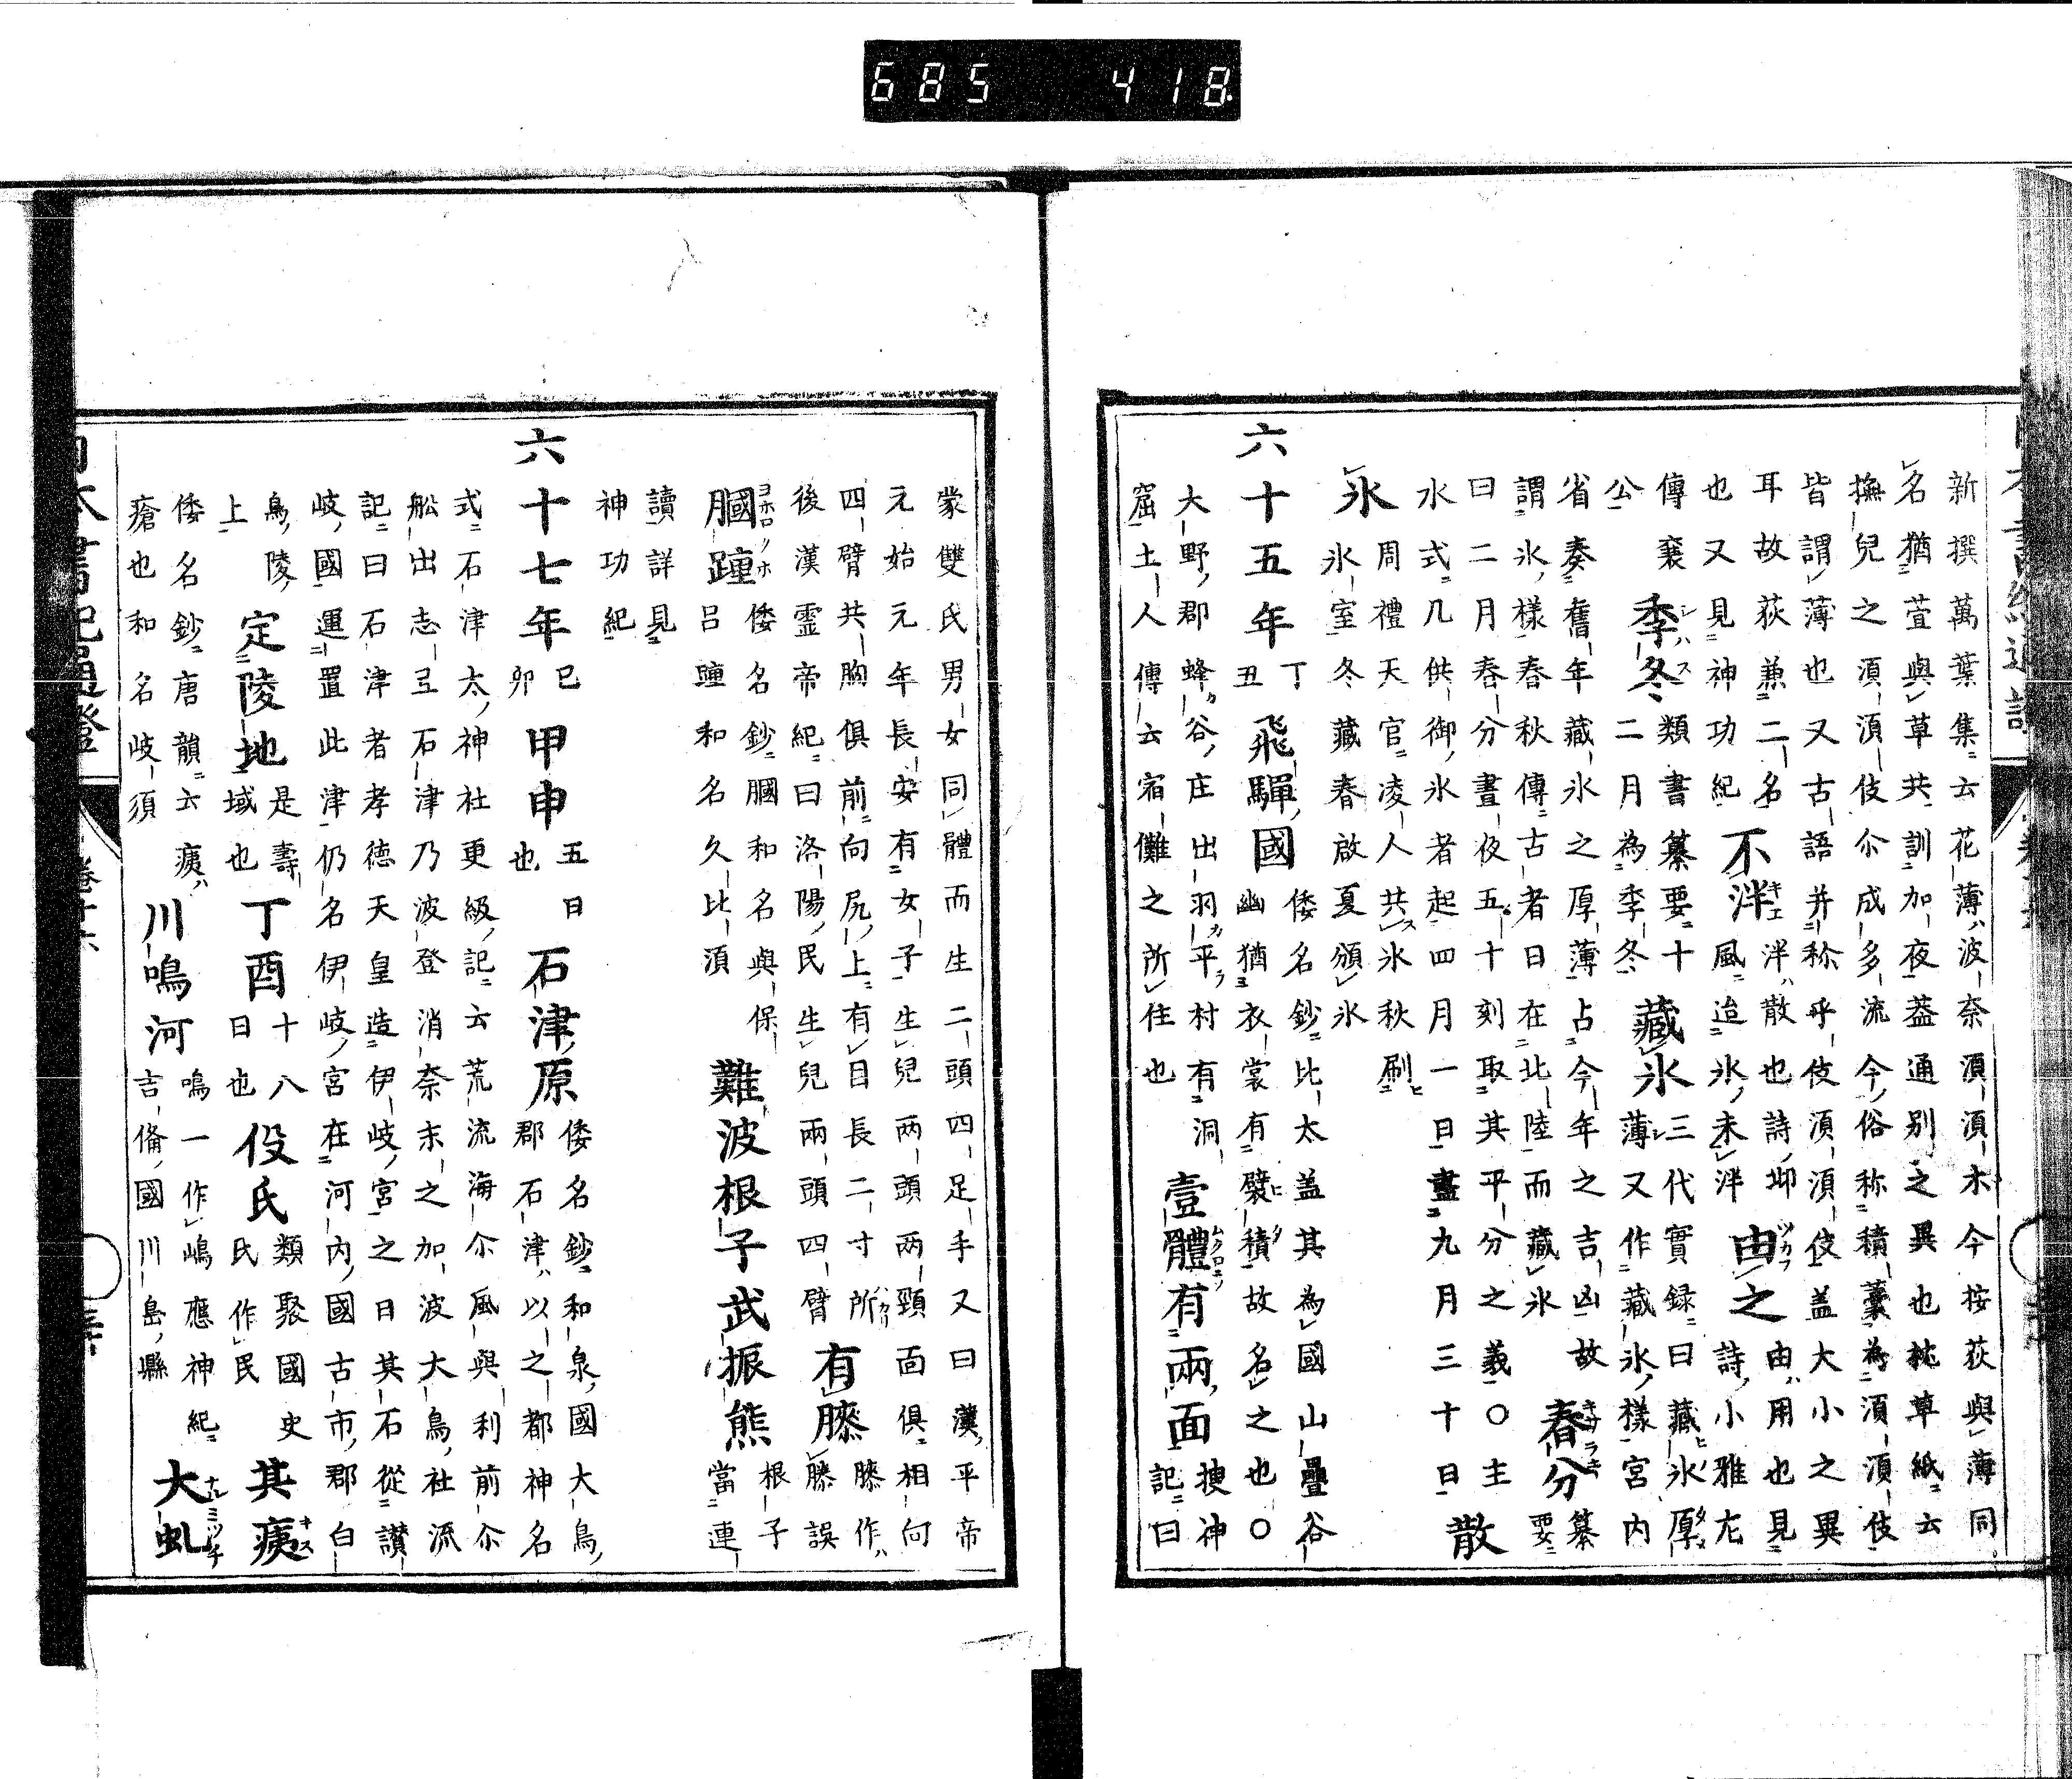 新撰萬葉集云花薄波奈湏湏木今按荻與薄同
名猶萱與草共訓加夜葢通別之異也枕草紙云
撫兒之湏湏伎尒成多流今俗称積藁為湏湏伎
皆謂薄也又古語并称乎伎湏湏伎盖大小之異
耳故荻兼二名
也又見神功紀
不泮
泮散也詩邶
風迨氷未泮
由之
由用也見
詩小雅尢
傳裒
公
季冬
類書纂要十
二月為季冬
藏氷
三代實録曰藏氷厚
薄又作藏氷樣宮内
省奏舊年藏氷之厚薄占今年之吉凶故
謂氷樣春秋傳古者日在北陸而藏氷
春分
纂
要
曰二月春分晝夜五十刻取其平分之義〇主
水式凡供御氷者起四月一日盡九月三十日
散
氷
周禮天官凌人共氷秋刷
氷室冬藏春啟夏頒氷
六十五年
丁
丑
飛騨國
倭名鈔比太盖其為國山疊谷
幽猶衣裳有襞積故名之也〇
大野郡蜂谷庄出羽平村有洞
窟土人傳云宿儺之所住也
壹體有兩面
搜神
記曰
蒙雙氏男女同體而生二頭四足手又曰漢平帝
元始元年長安有女子生兒兩頭兩頸面俱相向
四臂共胸俱前向尻上有目長二寸所
後漢靈帝紀曰洛陽民生兒兩頭四臂
有膝
膝作
滕誤
膕踵
倭名鈔膕和名與保
呂踵和名久比湏
難波根子武振熊
根子
當連
讀詳見
神功紀
六十七年
己
卯
甲申
五日
也
石津原
倭名鈔和泉國大鳥
郡石津以之都神名
式石津太神社更級記云荒流海尒風與利前尒
船出志弖石津乃波登消奈末之加波大鳥社流
記曰石津者孝德天皇造伊岐宮之日其石從讃
岐國運置此津仍名伊岐宮在河内國古市郡白
鳥陵
上
定陵地
是壽
域也
丁酉
十八
日也
役氏
類聚國史
氏作民
其痍
倭名鈔唐韻云痍
瘡也和名岐須
川鳴河
鳴一作嶋應神紀
吉備國川島縣
大虬
685 418